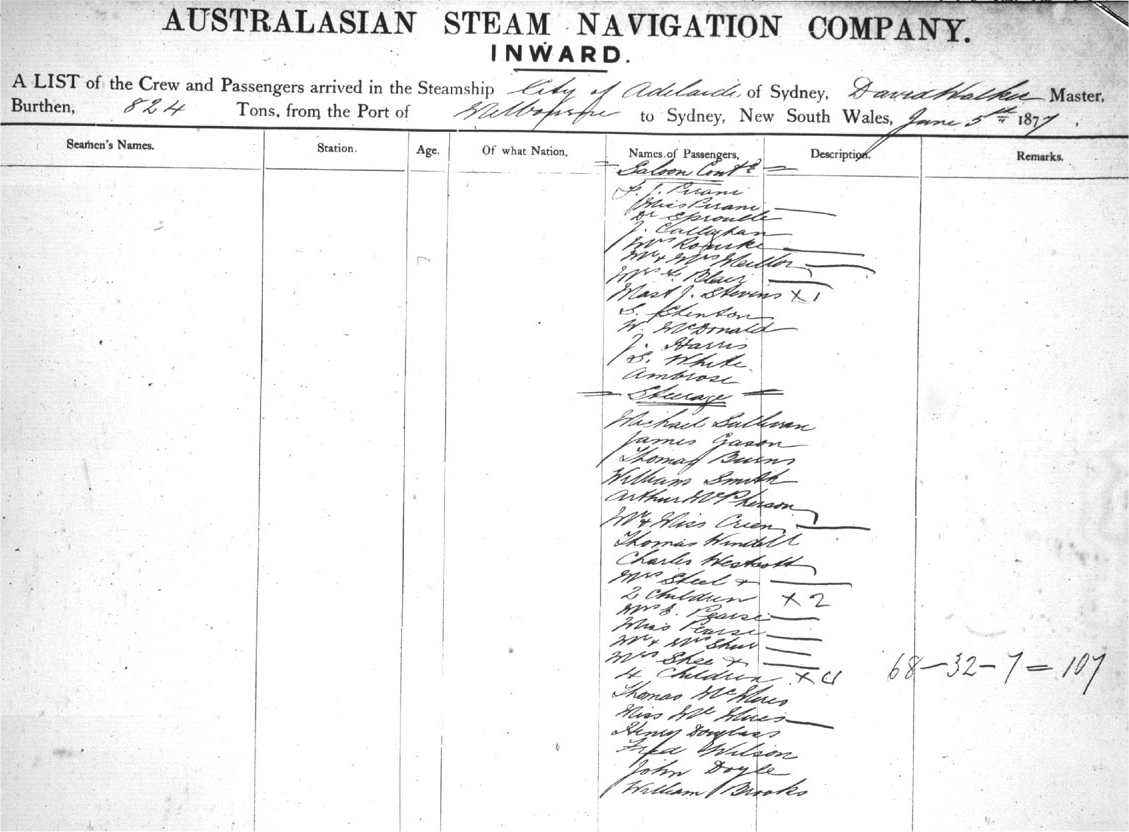 AUSTRALASIAN STEAM NAVIGATION COMPANY.
INWARD.
A LIST of the Crew and Passengers arrived in the Steamship City of Adelaide of Sydney, David Walker Master,
Burthen, 824 Tons, from the Port of Melbourne to Sydney, New South Wales, June 5th 1877.
Seamen's Names. Station. Age. Of what Nation. Names of Passengers, Description. Remarks.
Saloon Contd
J. Pirani
Miss Pirani
Dr Sproulle
J. Callaghan
Mrs Rourke
Mr & Mrs
Mrs Blair
Mast J. Stevens x 1
S. Shenton
W. McDonald
J. Harris
S. White
Ambrose
Steerage
Michael Sullivan
James Gason
Thomas Burns
William Smith
Arthur McPherson
Mr & Miss
Thomas Windell
Charles Westcott
Mrs Steel &
2 Children x 2
Mrs Pearse
Miss Pearse
Mr & Mrs
Mrs Shee &
4 Children x 4
68-32-7=107
Thomas
Miss
Henry Douglass
Fred Wilson
John Doyle
William Brooks